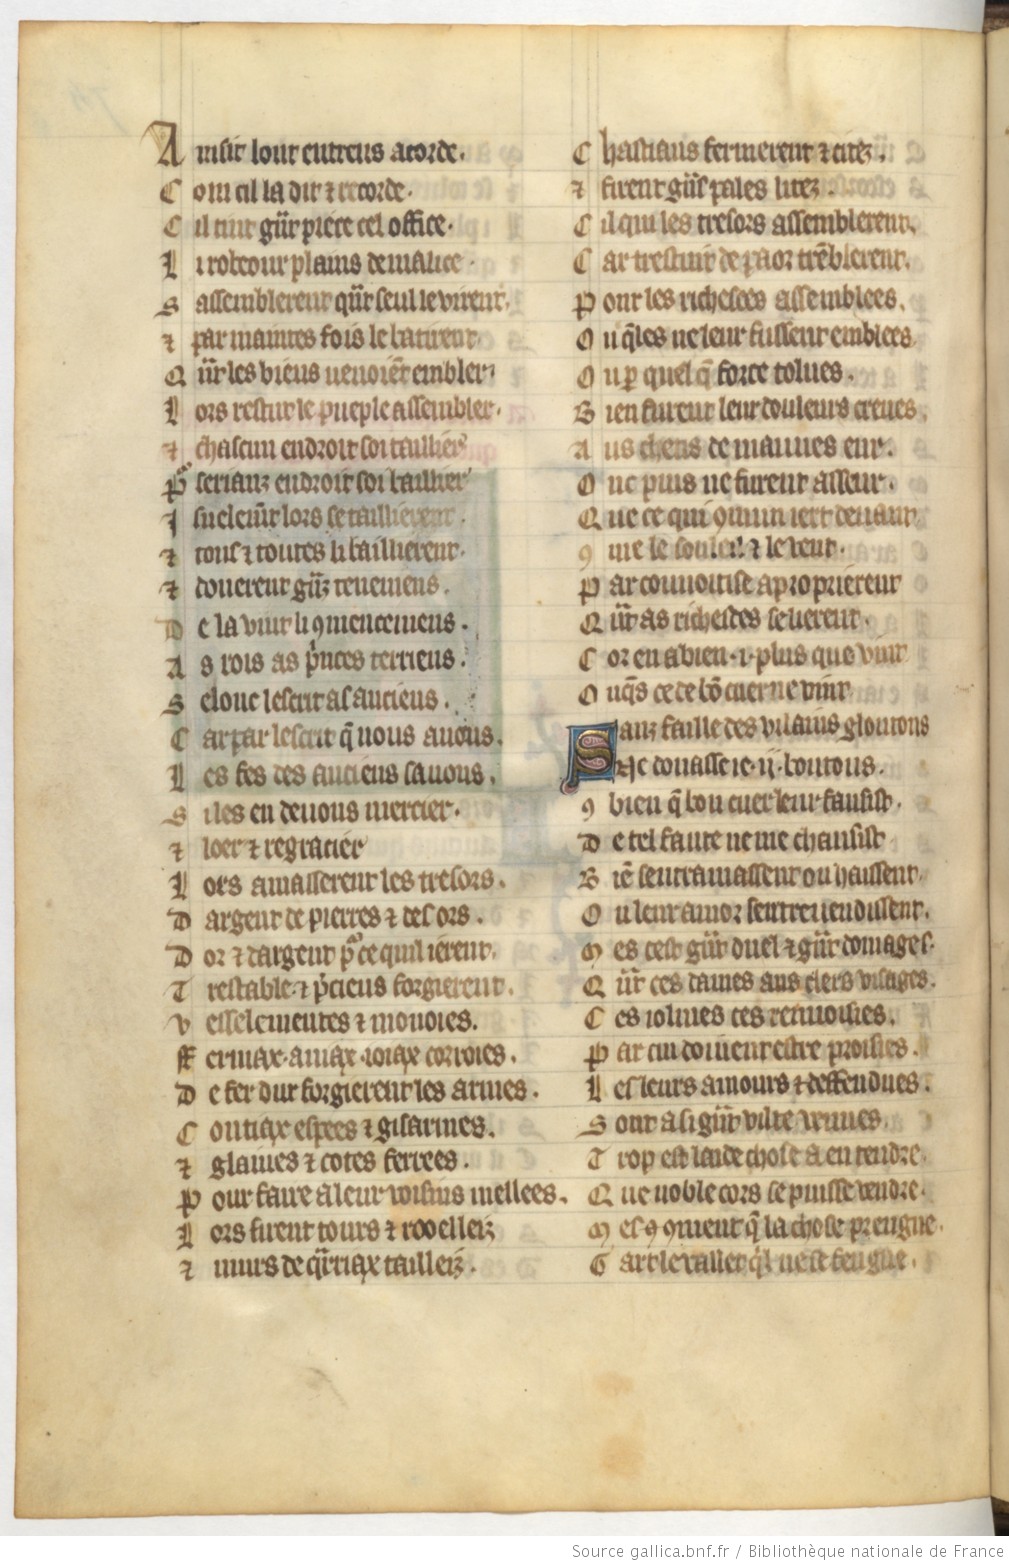 A insit lour entreus acorde.
C om cil la dit ⁊ recorde.
C il tint gñt piece cel office.
L i robeour plains de malice.
S assemblerent qñt seul le virent.
⁊ par maintes fois le batirent.
Q ñt les biens venoiēt embler.
L ors restut le pueple assembler.
⁊ chascun endroit soi taillier
P͛ serianz endroit soi baillier
J snelem̄t lors se taillierent.
⁊ tous ⁊ toutes li baillierent.
⁊ donerent gñz tenemens.
D e la vint li ꝯmencemens.
A s rois as p̃nces terriens.
S elonc lescrit as anciens.
C ar par lescrit q̄ nous auons.
L es fes des anciens sauons.
S i les en deuons mercier.
⁊ loer ⁊ regracier
L ors amasserent les tresors.
D argent de pierres ⁊ des ors.
D or ⁊ dargent p͛ ce quil ierent.
T restable ⁊ p̃cieus forgierent.
V esselementes ⁊ monoies.
ff ermax. aniax. ioiax corroies.
D e fer dur forgierent les armes.
C outiax espees ⁊ gisarmes.
⁊ glaiues ⁊ cotes ferrees.
P our faire a leur voisins mellees.
L ors firent tours ⁊ rooelleiz
⁊ murs de q̃rriax tailleiz.
C hastiaus fermerent ⁊ citez.
⁊ firent gñs pales litez.
C il qui les tresors assemblerent,
C ar trestuit de paor trēblerent.
P our les richesces assemblees.
O u q̄les ne leur fussent emblees
O u ꝑ quel q̄ force tolues.
B ien furent leur douleurs creues.
A us chetis de mauues eur.
O nc puis ne furent asseur.
Q ue ce qui ꝯmun iert deuant
ꝯ me le souleil ⁊ le vent.
P ar conuoitise aproprierent
Q ñt as richesces se lierent.
C or en a bien .i. plus que vint
O nq̄s ce de bō cuer ne vint
S anz faille des vilains gloutons
Ne donasse ie .ii. boutons.
ꝯ bien q̄ bon cuer leur fausist.
D e tel faute ne me chausist
B iē sentramassent ou haissent.
O u leur amor sentreuendissent.
M es cest gñt duel ⁊ gñt domages.
Q ñt ces dames aus clers visages.
C es iolines ces renuoisies.
P ar cui doiuent estre proisies.
L es leurs amours ⁊ deffendues.
S ont a si gñt vilte vendues.
T rop est laide chose a entendre.
Q ue noble cors se puisse vendre.
M es ꝯ ꝯment q̄ la chose preigne.
G art le vallet q̄l ne se feigne.